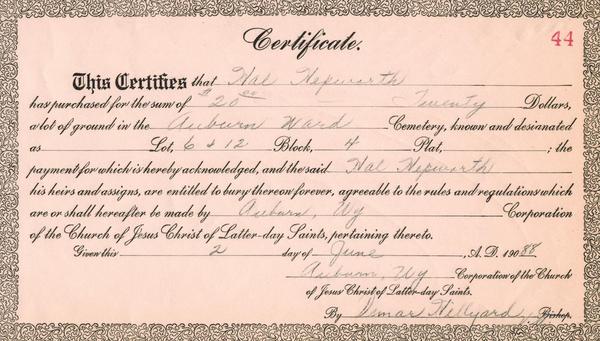 44
Certificate.
This Certifies that Hal Hepworth
has purchased for the sum of $20 00 — Twenty Dollars,
a lot of ground in the Auburn Ward Cemetery, known and designated
as Lot, 6 & 12 Block, 4 Plat, ; the
payment for which is hereby acknowledged, and the said Hal Hepworth
his heirs and assigns, are entitled to bury thereon forever, agreeable to the rules and regulations which
are or shall hereafter be made by Auburn, Wy Corporation
of the Church of Jesus Christ of Latter-day Saints, pertaining thereto.
Given this 2 day of June , A. D. 190 88
Auburn, Wy Corporation of the Church
of Jesus Christ of Latter-day Saints.
By Demar Hillyard, Bishop.